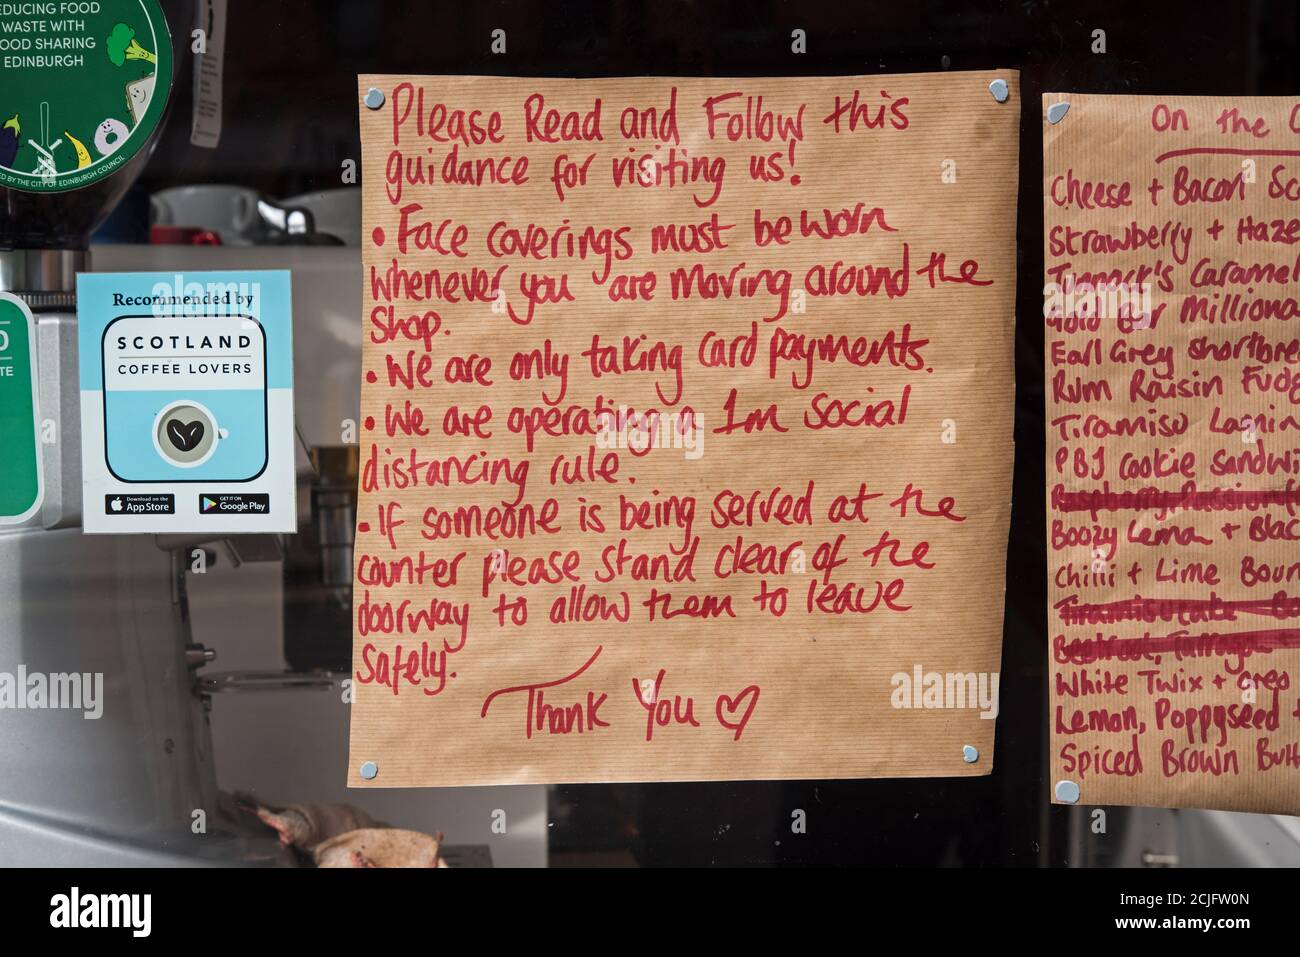 EDUCING FOOD
WASTE WITH
OOD SHARING
EDINBURGH
ED BY THE CITY OF EDINBURGH COUNCIL
Recommended by
SCOTLAND
COFFEE LOVERS
Download on the
App Store
GET IT ON
Google Play
Please Read and Follow this
guidance for visiting us!
• Face coverings must be worn
whenever you are moving around the
shop.
• We are only taking card payments.
• We are operating a 1m social
distancing rule.
• If someone is being served at the
counter please stand clear of the
doorway to allow them to leave
safely.
Thank You ♡
On the C
Cheese + Bacon Sc
Strawberry + Haze
Tunnock's Caramel
Gold Bar Milliona
Earl Grey Shortbre
Rum Raisin Fudg
Tiramisu
PBJ Cookie Sandwi
Boozy Lemon + Blac
Chilli + Lime Boun
White Twix + Oreo
Lemon, Poppyseed +
Spiced Brown Butt
alamy
Image ID: 2CJFW0N
www.alamy.com